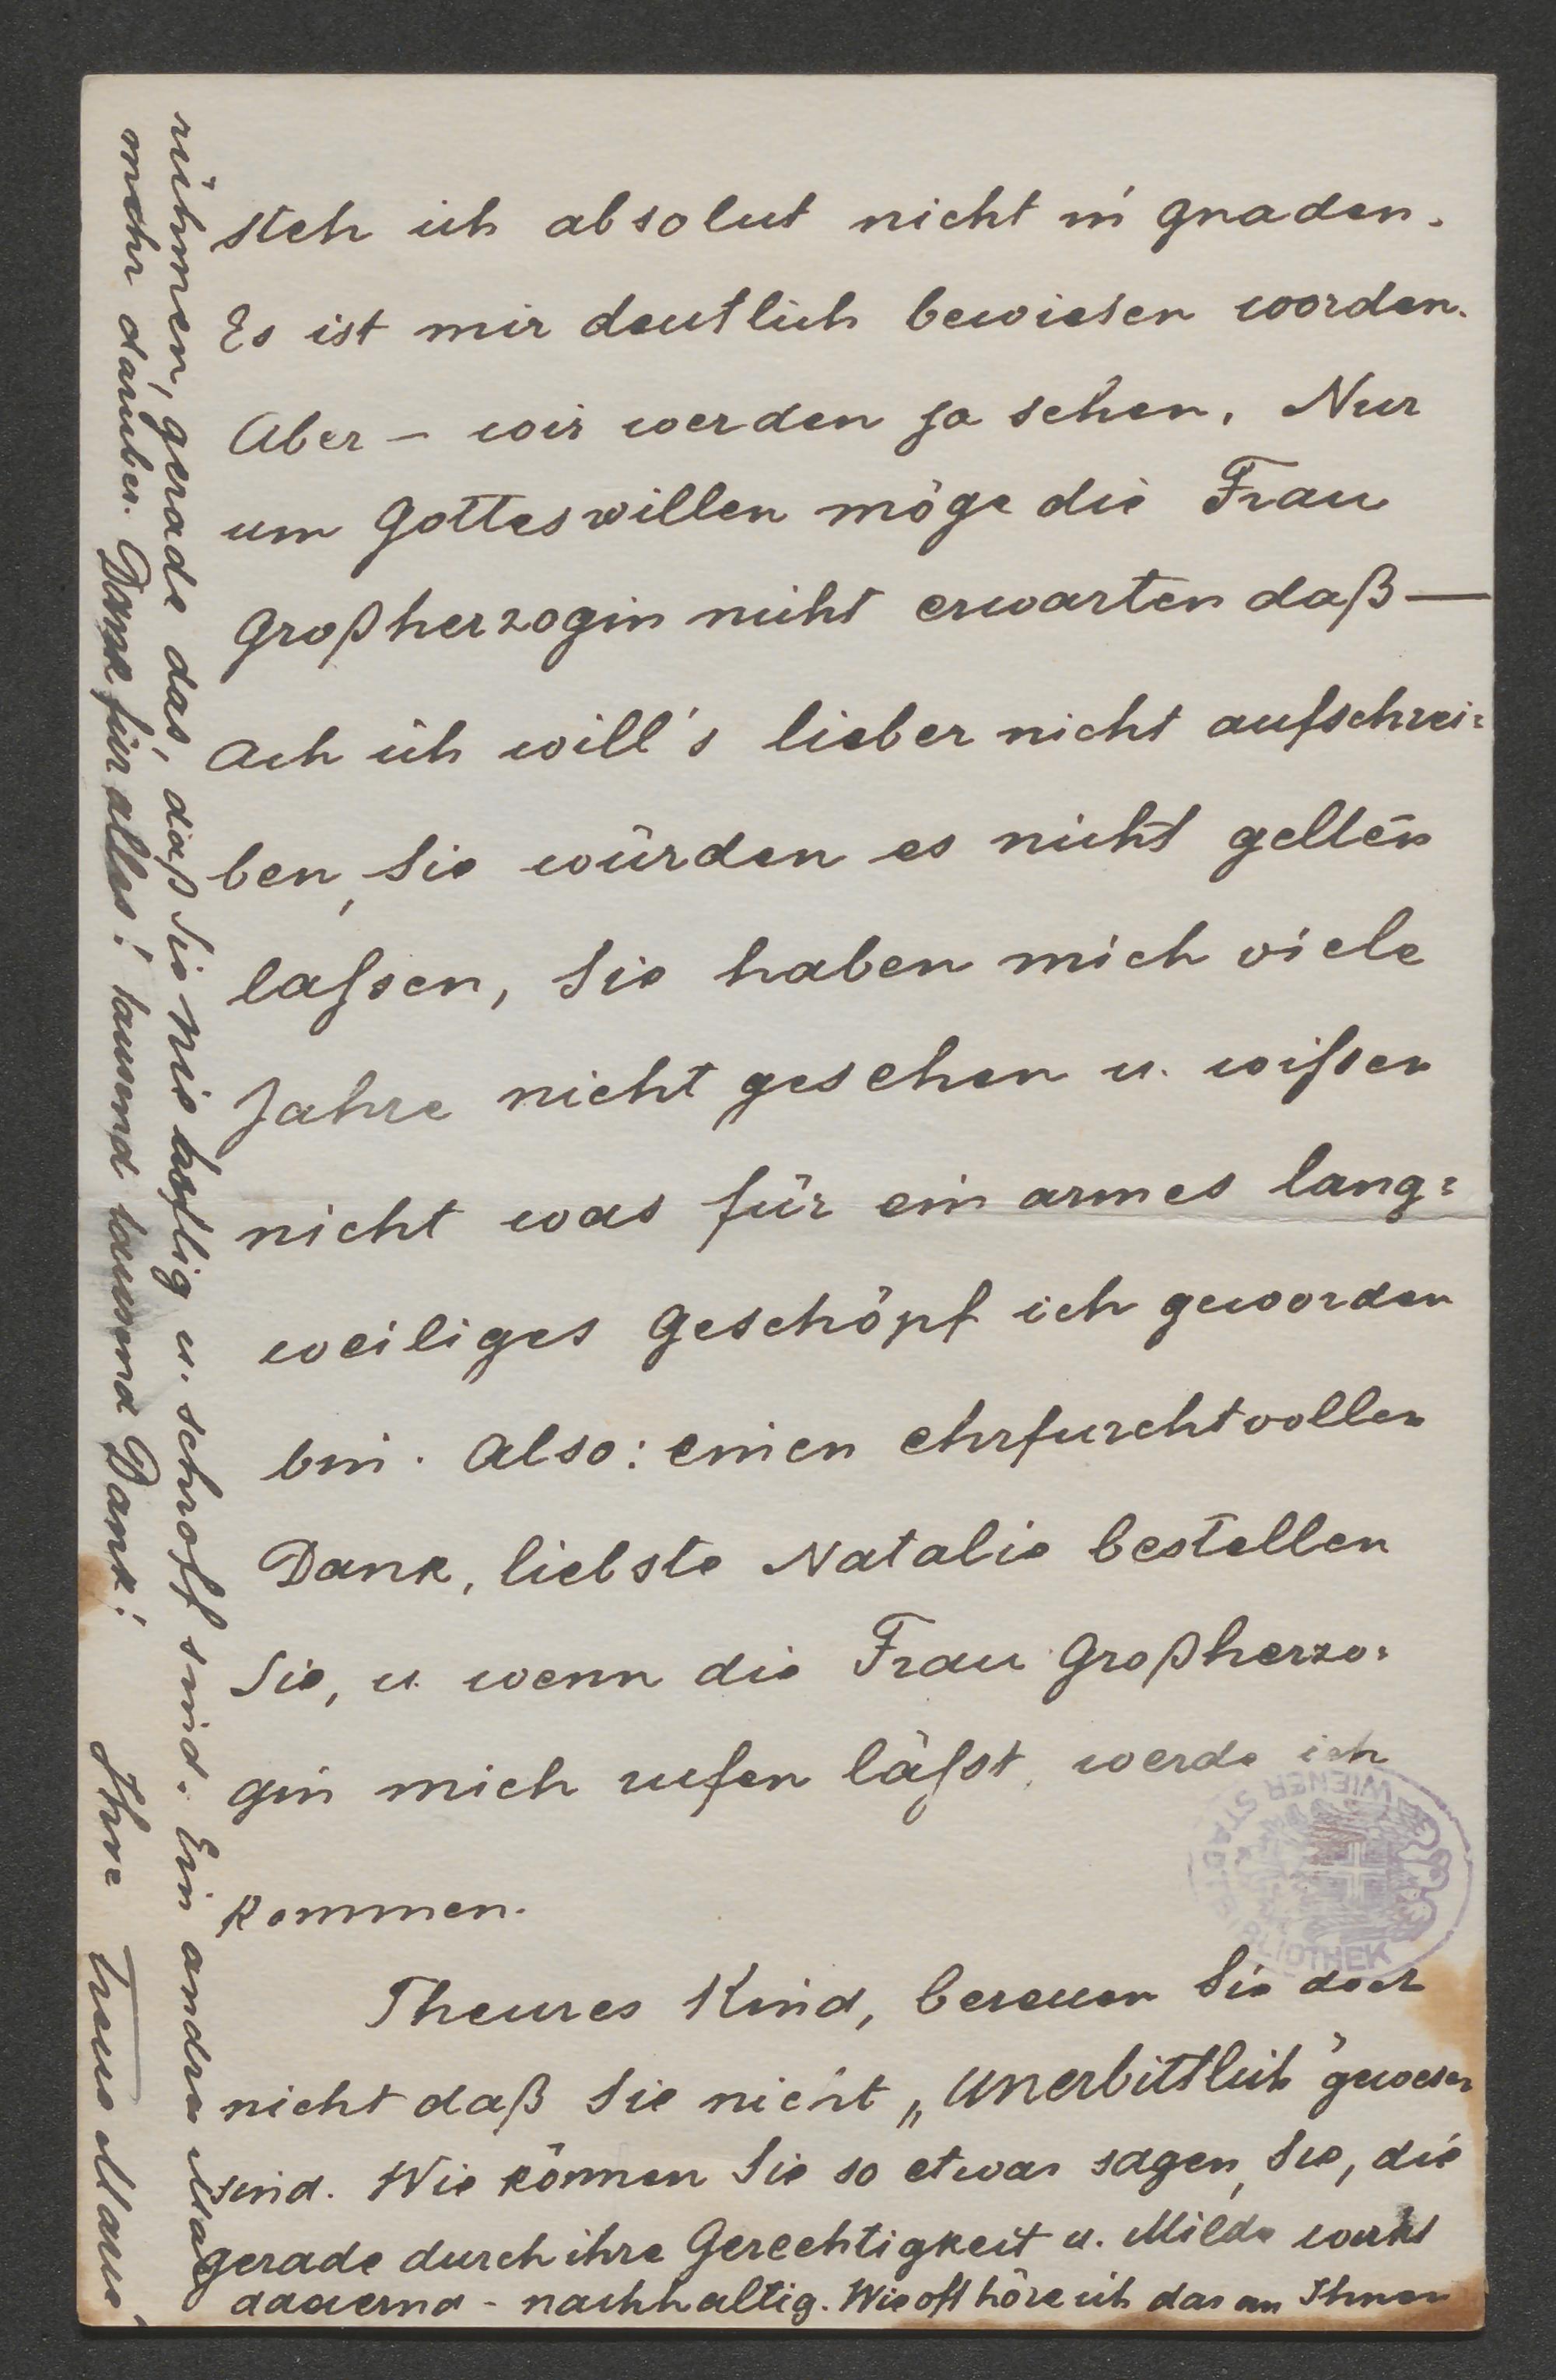 steh ich absolut nicht in Gnaden.
Es ist mir deutlich bewiesen worden.
Aber – wir werden ja sehen. Nur
um Gotteswillen möge die Frau
Großherzogin nicht erwarten daß —
Ach ich will's lieber nicht aufschrei=
ben, Sie würden es nicht gelten
lassen, Sie haben mich viele
Jahre nicht gesehen u. wissen
nicht was für ein armes lang=
weiliges Geschöpf ich geworden
bin. Also: einen ehrfurchtvollen
Dank, liebste Natalie bestellen
Sie, u. wenn die Frau Großherzo=
gin mich rufen läßt, werde ich
kommen.
Theures Kind, bereuen Sie doch
nicht daß Sie nicht „unerbittlich" gewesen
sind. Wie können Sie so etwas sagen, Sie, die
gerade durch ihre Gerechtigkeit u. Milde wirkt
dauernd - nachhaltig. Wie oft höre ich das an Ihnen
rühmen, gerade das, daß Sie nie heftig u. schroff sind. Ein andres Mal
mehr darüber. Dank für alles! tausend tausend Dank!
Ihre treue Marie
WIENER STADTBIBLIOTHEK